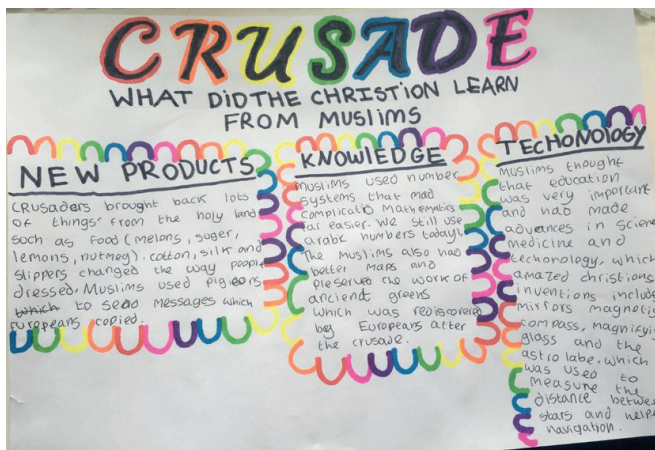 CRUSADE
WHAT DID THE CHRISTION LEARN
FROM MUSLIMS
NEW PRODUCTS
CRUSADERS brought back lots
of things from the holy land
such as food (melons, suger,
lemons, nutmeg). cotton, silk and
slippers changed the way people
dressed. Muslims used pigeons
which to send messages which
europeans copied.
KNOWLEDGE
Muslims used number
systems that mad
complicatio Mathematics
far easier. We still use
arabic numbers today!
The Muslims also had
better Maps and
preserved the work of
ancient greeks
which was rediscovered
by Europeans after
the crusade.
TECHONOLOGY
Muslims thought
that education
was very important
and had made
advances in scien
medicine and
techonology, which
amazed christions
inventions include
mirrors magnetic
compass, magnifyin
glass and the
astrolabe, which
was used to
measure the
distance betwee
stars and helpe
navigation.